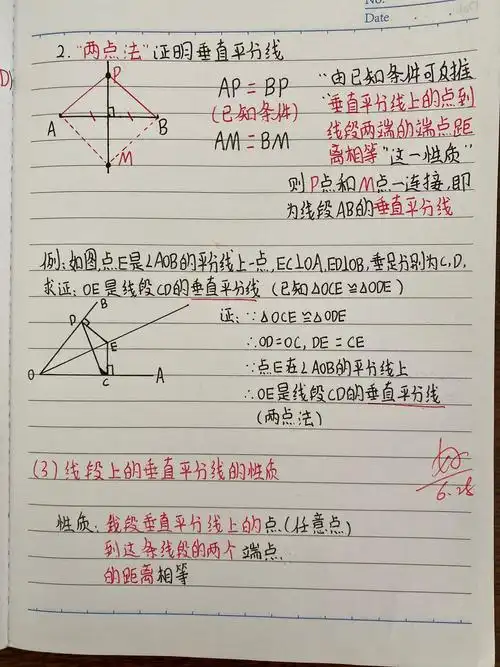 No.
Date
2. "两点法"证明垂直平分线
P
A
B
M
AP = BP
(已知条件)
AM = BM
"由已知条件可反推
垂直平分线上的点到
线段两端的端点距
离相等"这一性质"
则P点和M点一连接,即
为线段AB的垂直平分线
例:如图,点E是∠AOB的平分线上一点,EC⊥OA,ED⊥OB,垂足分别为C,D.
求证:OE是线段CD的垂直平分线 (已知△OCE≌△ODE)
B
D
E
O
C
A
证:∵△OCE≌△ODE
∴OD=OC, DE = CE
∵点E在∠AOB的平分线上
∴OE是线段CD的垂直平分线
(两点法)
(3) 线段上的垂直平分线的性质
6.28
性质:线段垂直平分线上的点(任意点)
到这条线段的两个端点
的距离相等